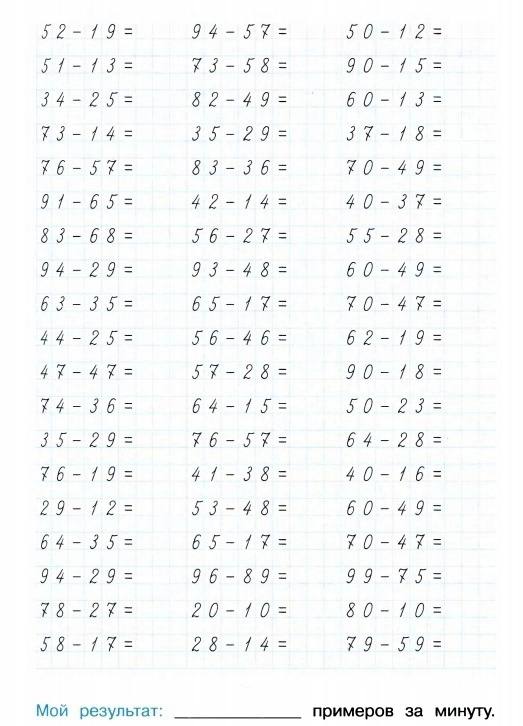 52-19= 94-57= 50-12=
51-13= 73-58= 90-15=
34-25= 82-49= 60-13=
73-14= 35-29= 37-18=
76-57= 83-36= 70-49=
91-65= 42-14= 40-37=
83-68= 56-27= 55-28=
94-29= 93-48= 60-49=
63-35= 65-17= 70-47=
44-25= 56-46= 62-19=
47-47= 57-28= 90-18=
74-36= 64-15= 50-23=
35-29= 76-57= 64-28=
76-19= 41-38= 40-16=
29-12= 53-48= 60-49=
64-35= 65-17= 70-47=
94-29= 96-89= 99-75=
78-27= 20-10= 80-10=
58-17= 28-14= 79-59=
Мой результат: __________ примеров за минуту.